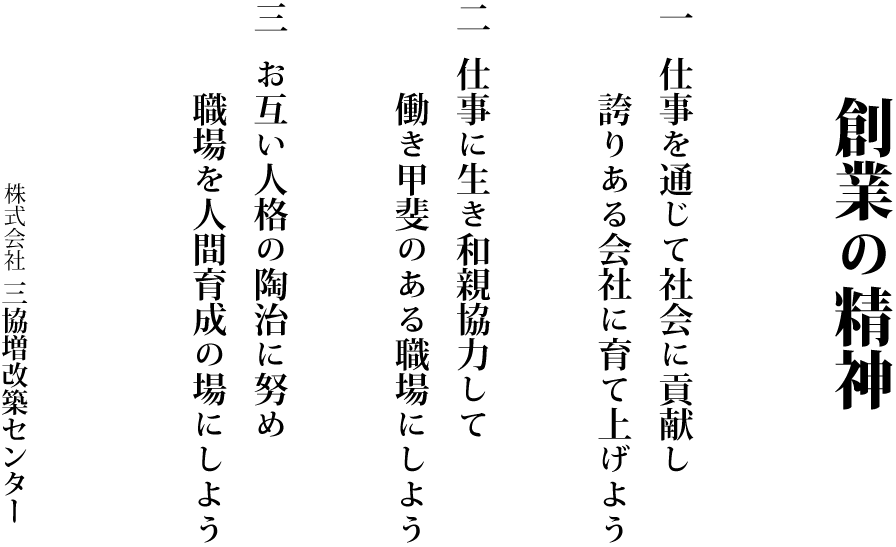 創業の精神
一 仕事を通じて社会に貢献し
誇りある会社に育て上げよう
二 仕事に生き和親協力して
働き甲斐のある職場にしよう
三 お互い人格の陶冶に努め
職場を人間育成の場にしよう
株式会社 三協増改築センター